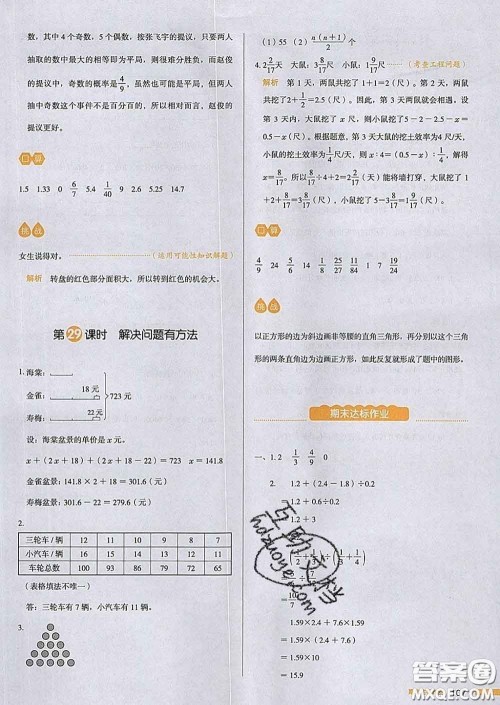 数，其中 4 个奇数，5 个偶数，按张飞宇的提议，只要两人
抽取的数中最大的相等即为平局，则很难分胜负，而赵俊
的提议，奇数的概率是4/9，虽然也可能是平局，但两人
抽中奇数这个事件不是百分百的，所以相对而言，赵俊的
提议更好。
口算
1.5 1.33 0 6/7 5.4 1/40 9 2.6 5.25 14.7
挑战
女生说得对。（运用可能性知识解题）
解析 转盘的红色部分面积大，所以转到红色的机会大。
第29课时 解决问题有方法
1. 海棠：
金雀： 18 元
723 元
寿梅： 22 元
设：海棠盆景的单价是 x 元。
x＋（2x－18）＋（2x－18－22）＝723 x＝141.8
金雀盆景：141.8×2－18＝301.6（元）
寿梅盆景：301.6－22＝279.6（元）
2.
三轮车/辆 12 11 10 9 8 7
小汽车/辆 16 15 14 13 12 11
车轮总数 100 93 86 79 72 65
（表格填法不唯一）
答：三轮车有 7 辆，小汽车有 11 辆。
3.
（1）55 （2）n(n＋1)/2 个
4. 2 2/17天 大鼠：3 8/17尺 小鼠：1 9/17尺 （考查工程问题）
解析 第 1 天，两鼠共挖了 1＋1＝2（尺）。第 2 天，两鼠
共挖了2＋1/2＝2.5（尺）。因此，第 3 天两鼠就会相遇，设
第 3 天内，大鼠挖了 x 尺，则小鼠挖了
5－2－2.5－x＝（0.5－x）尺。根据题意，第 3 天大鼠的挖土效率为4尺/天，
小鼠的挖土效率为1/4尺/天，则 x∶4＝（0.5－x）∶1/4，解得
x＝8/17，所以8/17÷4＋2＝2 2/17（天）能将墙打穿，大鼠挖了
1＋2＋8/17＝3 8/17（尺），小鼠挖了5－3 8/17＝1 9/17（尺）。
口算
4/9 24 5/14 16 3/25 1/4 3/4 6/11
挑战
以正方形的边为斜边画非等腰的直角三角形，再分别以这个三角
形的两条直角边为边画正方形，如此反复就形成了题中的图形。
期末达标作业
一、1. 2 1/3 4/9 0
2. 1.2＋（2.4－1.8）÷0.2
＝1.2＋0.6÷0.2
＝1.2＋3
互助文档
hdzuoye.com
1.59×2.4＋7.6×1.59
＝1.59×10
＝15.9
答案圈
MXQE.COM